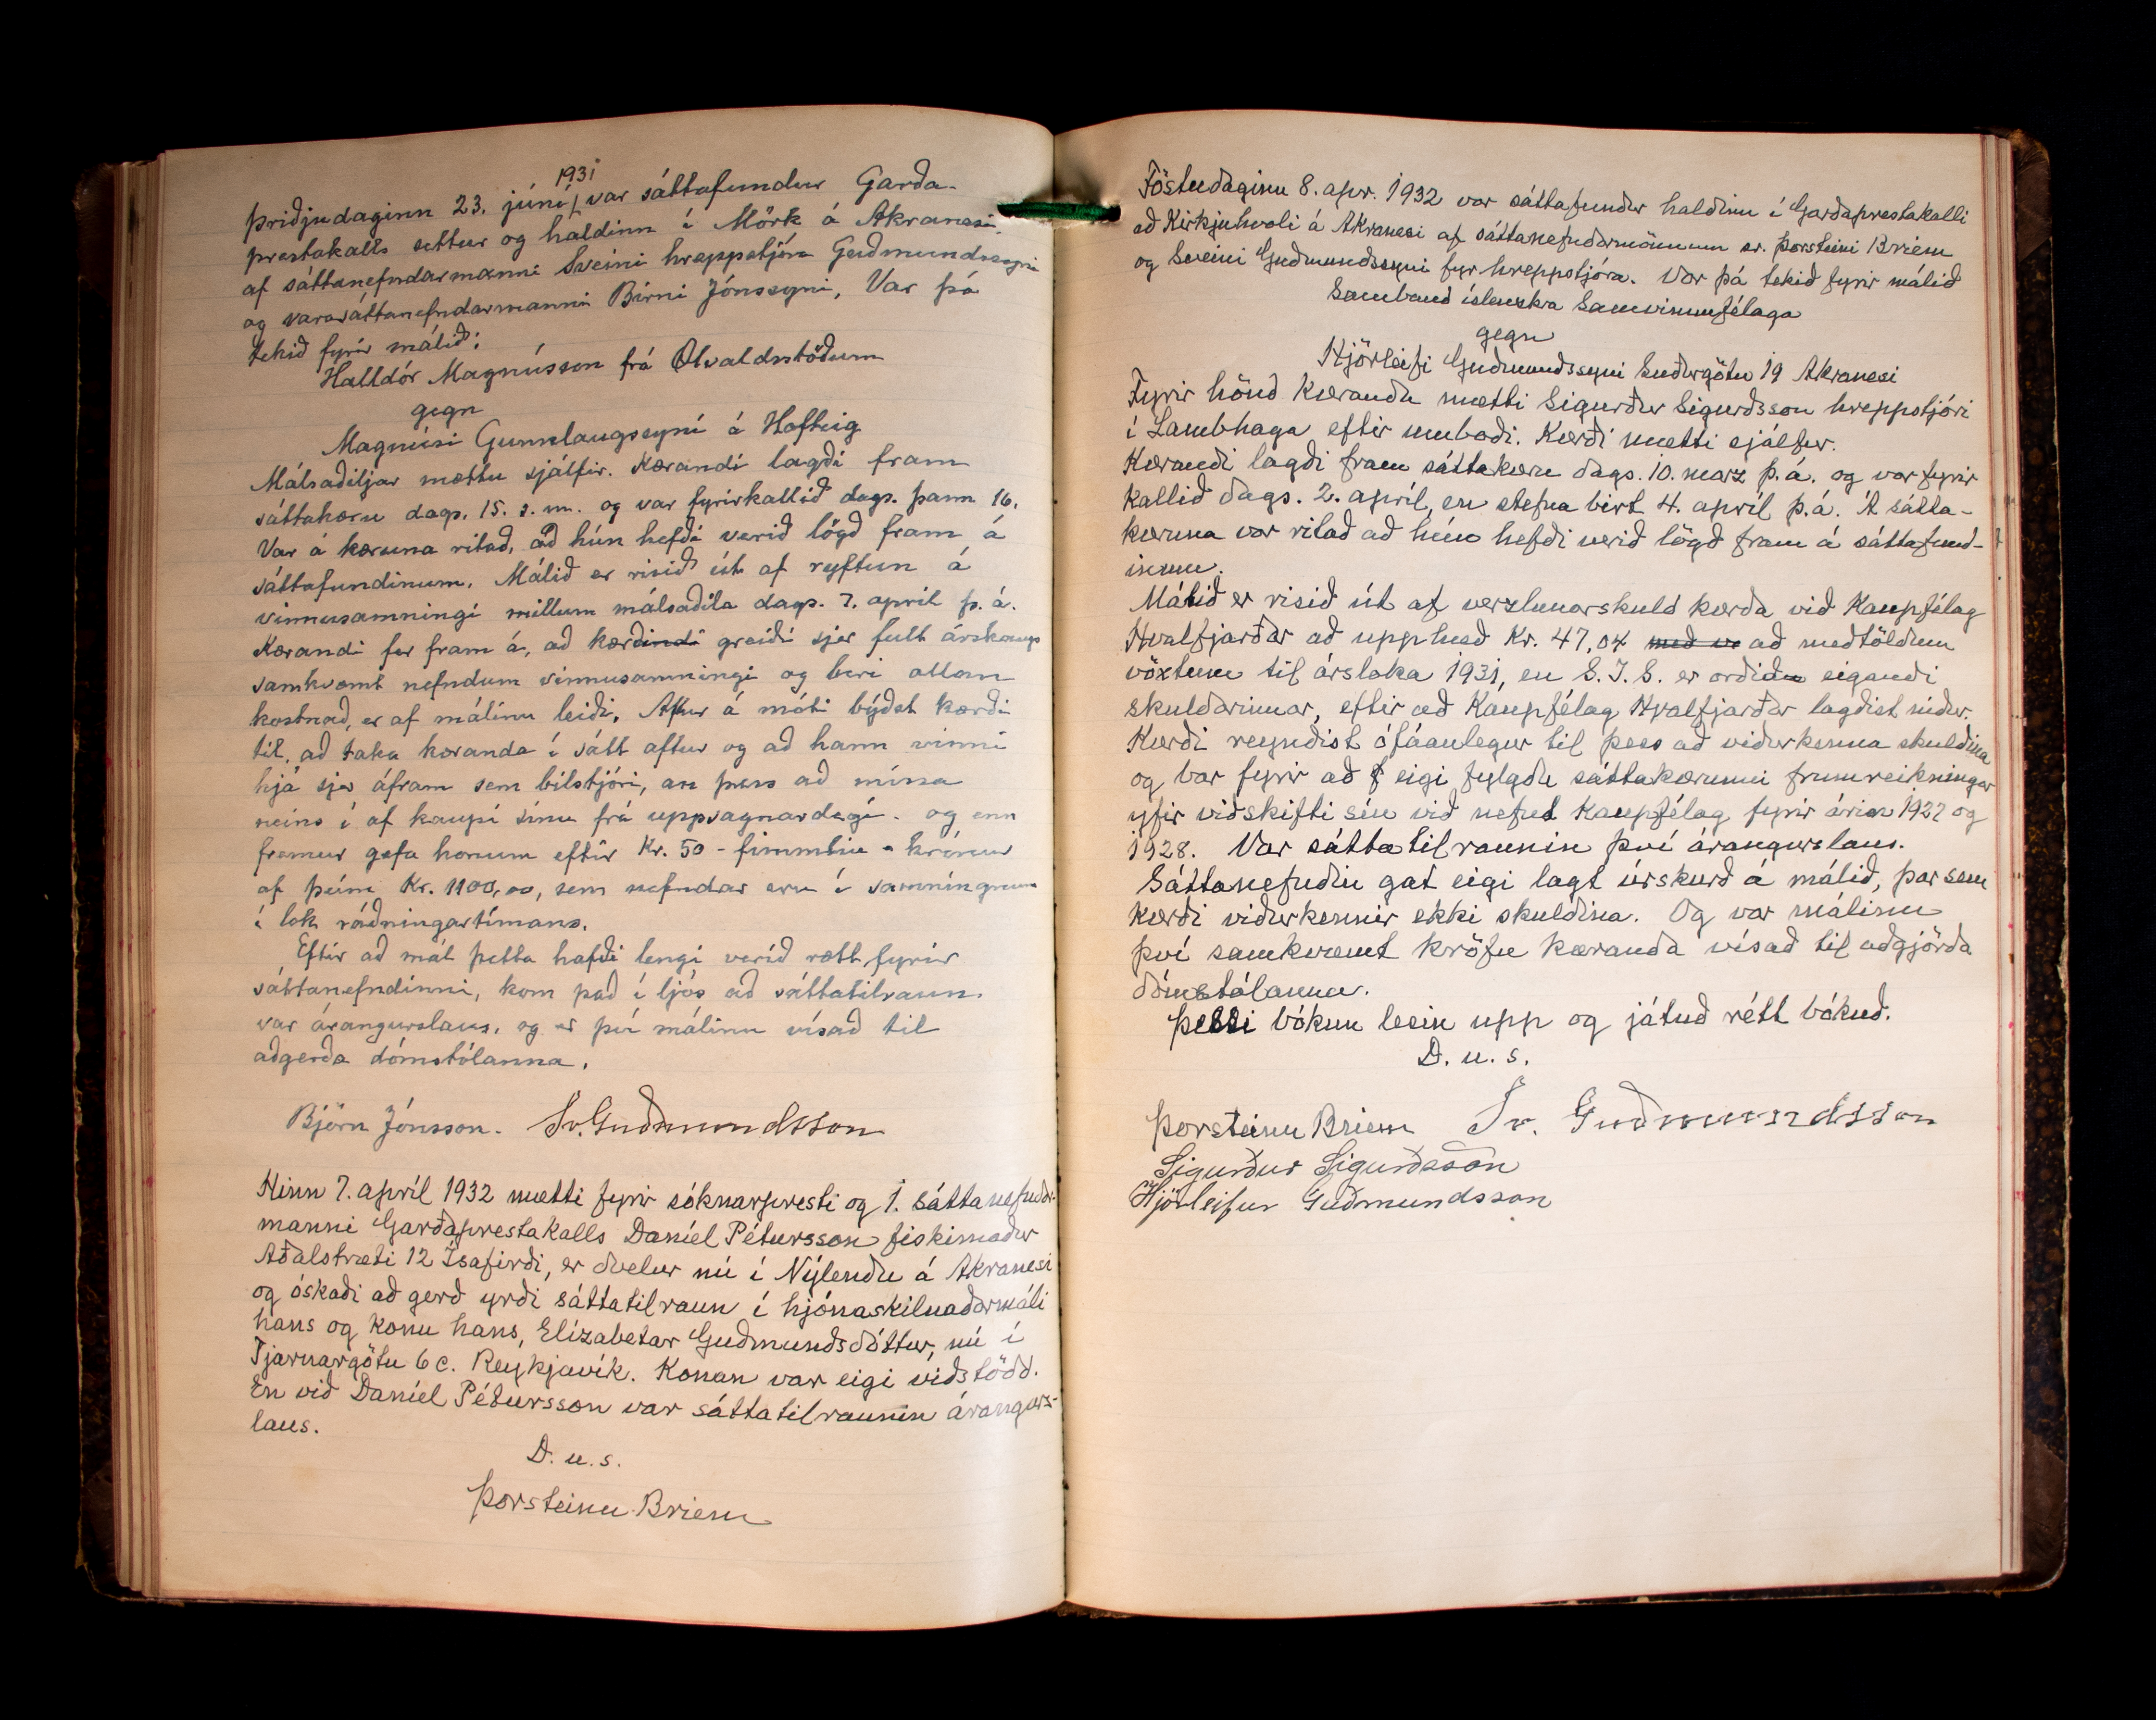 1931
Þriðjudaginn 23. júní var sáttafundur Garða-
prestakalls settur og haldinn í Mörk á Akranesi
af sáttanefndarmanni Sveini hreppstjóra Guðmundssyni
og varasáttanefndarmanni Birni Jónssyni, Var þá
tekið fyrir málið:
Halldór Magnússon frá Ölvaldsstöðum
gegn
Magnúsi Gunnlaugssyni á Hofteig
Málsaðiljar mættu sjálfir. Kærandi lagði fram
sáttakæru dags. 15. s.m. og var fyrirkallið dags. þann 16.
Var á kæruna ritað, að hún hefði verið lögð fram á
sáttafundinum. Málið er risið út af ryftun á
vinnusamningi millum málsaðila dags. 7. apríl þ. á.
Kærandi fer fram á, að kærðindi greiði sjer fult árskaup
samkvæmt nefndum vinnusamningi og beri allan
kostnað, er af málinu leiði. Aftur á móti býðst kærði
til, að taka kæranda í sátt aftur og að hann vinni
hjá sjer áfram sem bílstjóri, án þess að missa
neins í af kaupi sínu frá uppsagnardegi. og enn
fremur gefa honum eftir Kr. 50 - fimmtíu - krónur
af þeim Kr. 1100,00, sem nefndar eru í samningnum
í lok ráðningartímans.
Eftir að mál þetta hafði lengi verið rætt fyrir
sáttanefndinni, kom það í ljós að sáttatilraun.
var árangurslaus, og er því málinu vísað til
aðgerða dómstólanna.
Björn Jónsson. Sv. Guðmundsson
Hinn 7. apríl 1932 mætti fyrir sóknarpresti og 1. sáttanefndar-
manni Garðaprestakalls Daníel Pétursson fiskimaður
Aðalstræti 12 Ísafirði, er dvelur nú í Nýlendu á Akranesi
og óskaði að gerð yrði sáttatilraun í hjónaskilnaðarmáli
hans og konu hans, Elízabetar Guðmundsdóttur, nú í
Tjarnargötu 6 c. Reykjavík. Konan var eigi viðstödd.
En við Daníel Pétursson var sáttatilraunin árangurs-
laus.
D. u. s.
Þorsteinn Briem
Föstudaginn 8. apr. 1932 var sáttafundur haldinn í Garðaprestakalli
að Kirkjuhvoli á Akranesi af sáttanefndarmönnum sr. Þorsteini Briem
og Sveini Guðmundssyni fyr hreppstjóra. Var þá tekið fyrir málið
Samband íslenzkra Samvinnufélaga
gegn
Hjörleifi Guðmundssyni Suðurgötu 19 Akranesi
Fyrir hönd kæranda mætti Sigurður Sigurðsson hreppstjóri
í Lambhaga eftir umboði. Kærði mætti sjálfur.
Kærandi lagði fram sáttakæru dags. 10. marz þ.á. og var fyrir
kallið dags. 2. apríl, en stefna birt 4. apríl þ.á. Á sátta-
kæruna var ritað að hún hefði verið lögð fram á sáttafund-
inum.
Málið er risið út af verzlunarskuld kærða við Kaupfélag
Hvalfjarðar að upphæð Kr. 47,04 með v að meðtöldum
vöxtum til ársloka 1931, en S.Í.S. er orðinn eigandi
skuldarinnar, eftir að Kaupfélag Hvalfjarðar lagðist niður.
Kærði reyndist ófáanlegur til þess að viðurkenna skuldina
og bar fyrir að f eigi fylgdu sáttakærunni frumreikningar
yfir viðskifti sín við nefnt Kaupfélag fyrir árin 1927 og
1928. Var sáttatilraunin því árangurslaus.
Sáttanefndin gat eigi lagt úrskurð á málið, þar sem
kærði viðurkennir ekki skuldina. Og var málinu
því samkvæmt kröfu kæranda vísað til aðgjörða
dómstólanna.
Þessi bókun lesin upp og játuð rétt bókuð.
D. u. s.
Þorsteinn Briem Sv. Guðmundsson
Sigurður Sigurðsson
Hjörleifur Guðmundsson